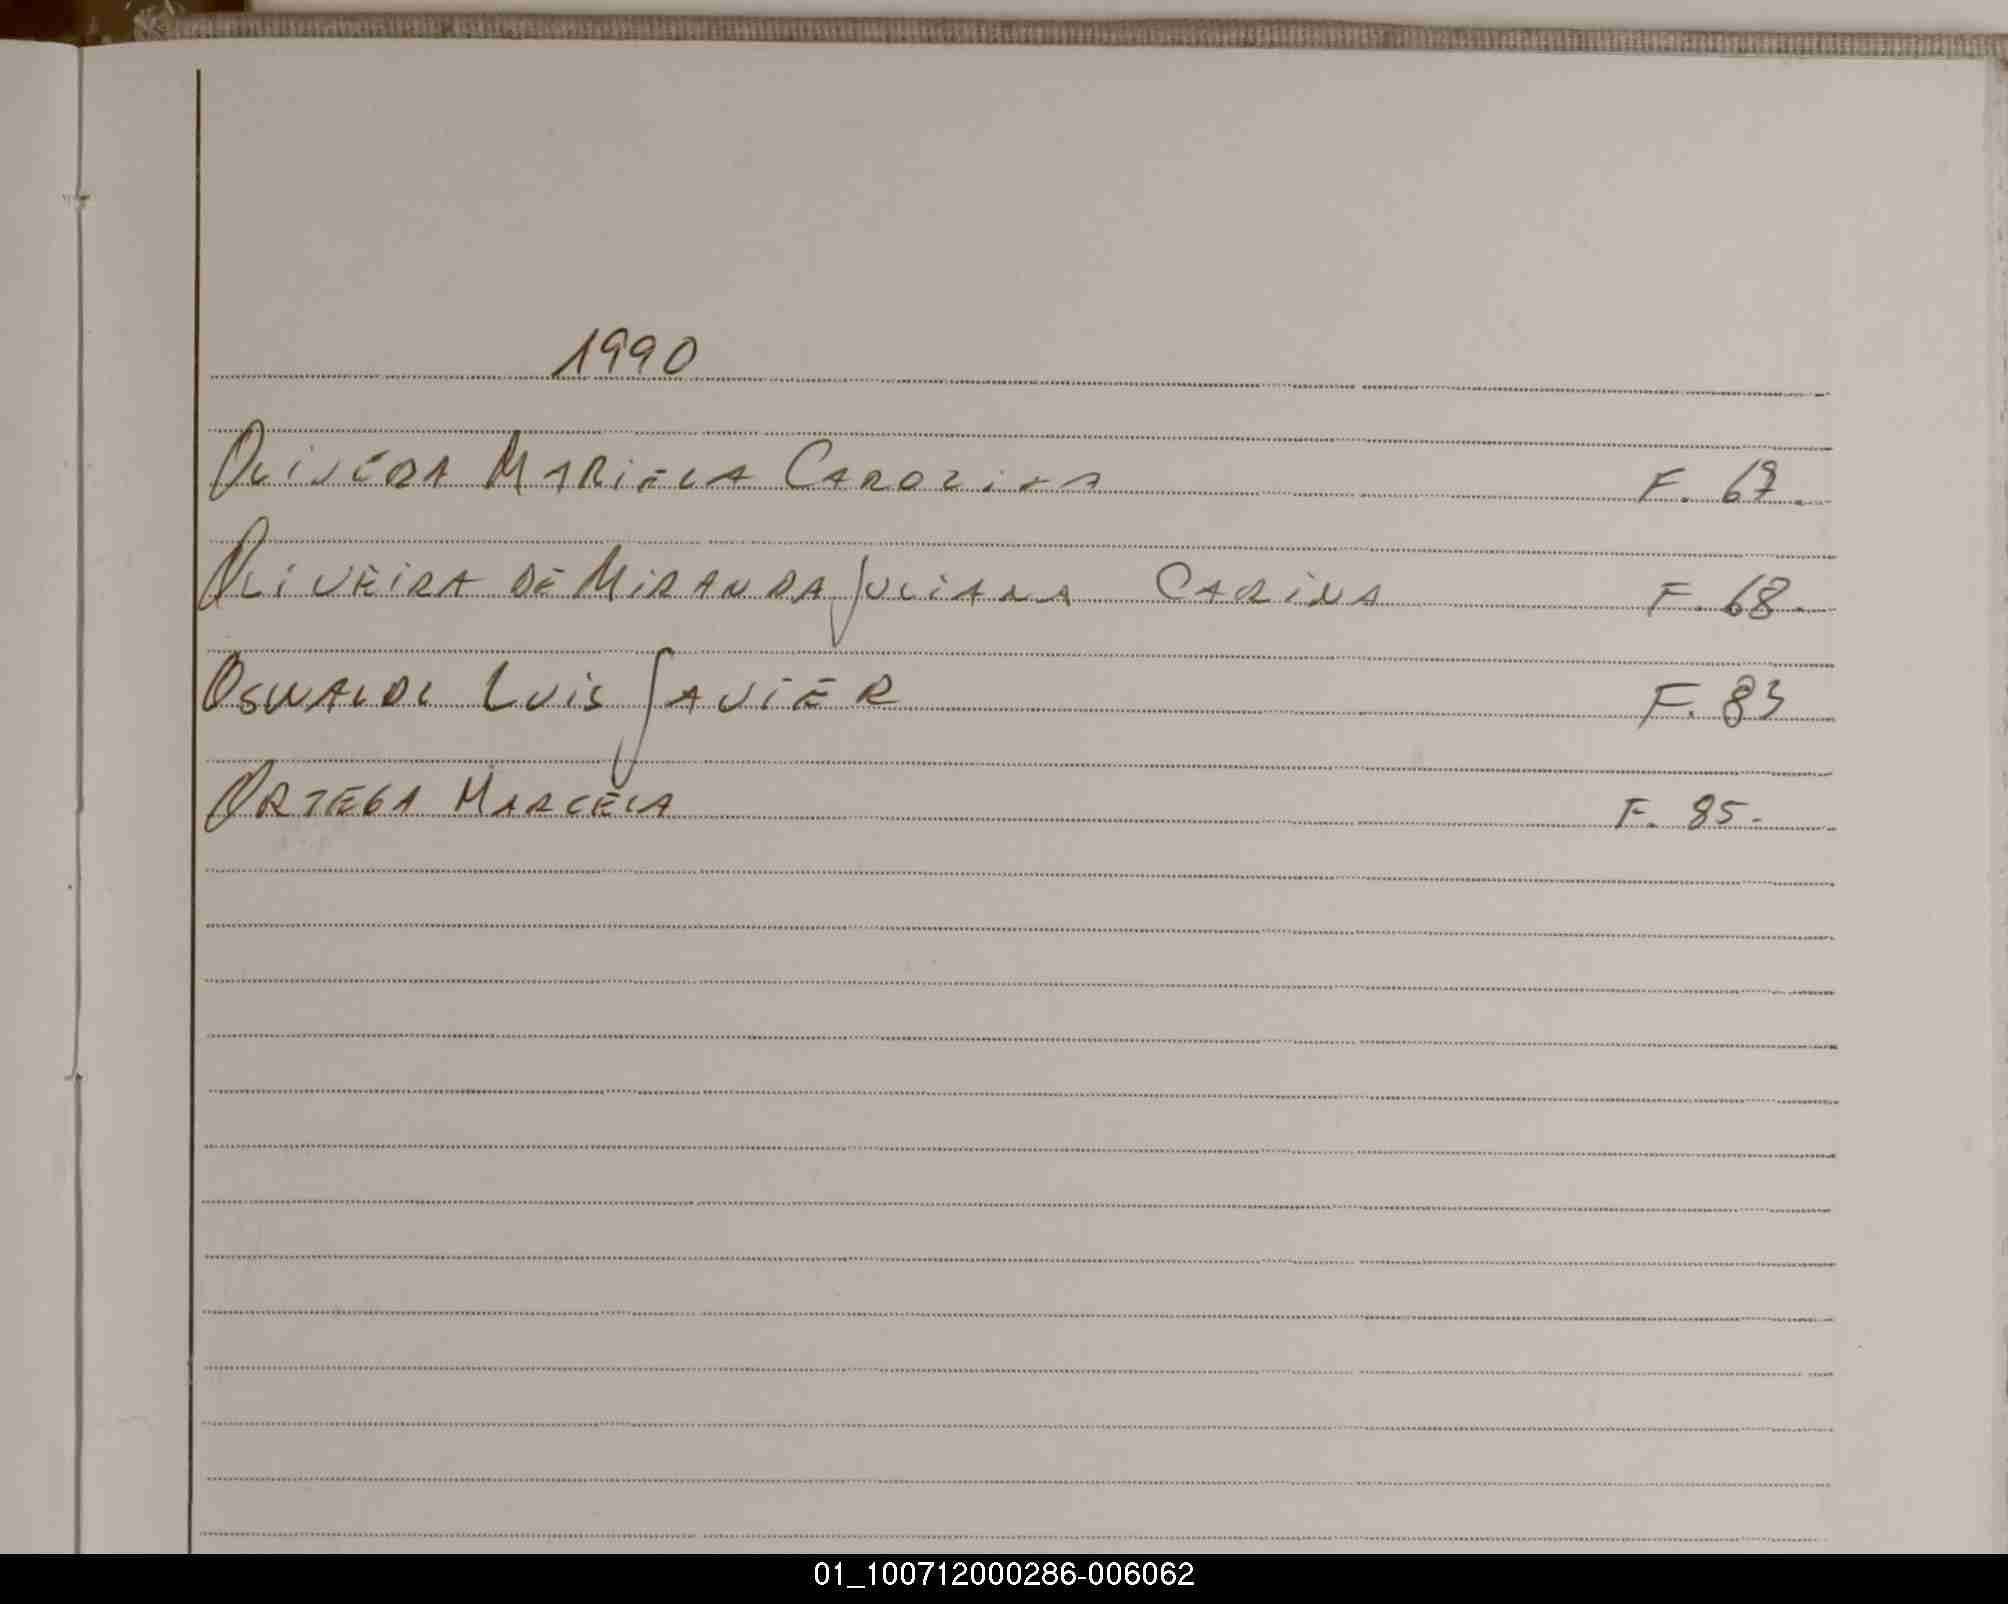 1990
OLIVERA MARIELA CAROLINA F. 67.
OLIVEIRA DE MIRANDA JULIANA CARINA F. 68.
LUIS JAVIER F. 83
ORTEGA MARCELA F. 85.
01_100712000286-006062